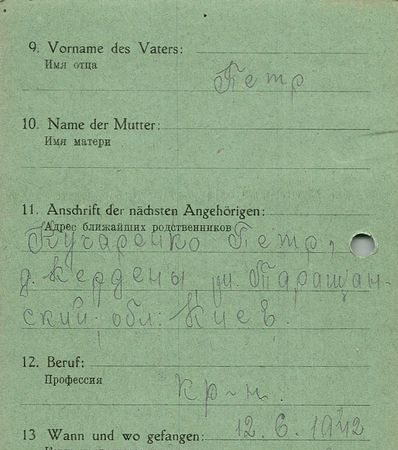 9. Vorname des Vaters:
Имя отца
Петр
10. Name der Mutter:
Имя матери
11. Anschrift der nächsten Angehörigen:
Адрес ближайших родственников
Кучаренко Петр,
д. Кердены, Таращан-
ский. обл. Киев.
12. Beruf:
Профессия
кр-н.
13 Wann und wo gefangen: 12. 6. 1942